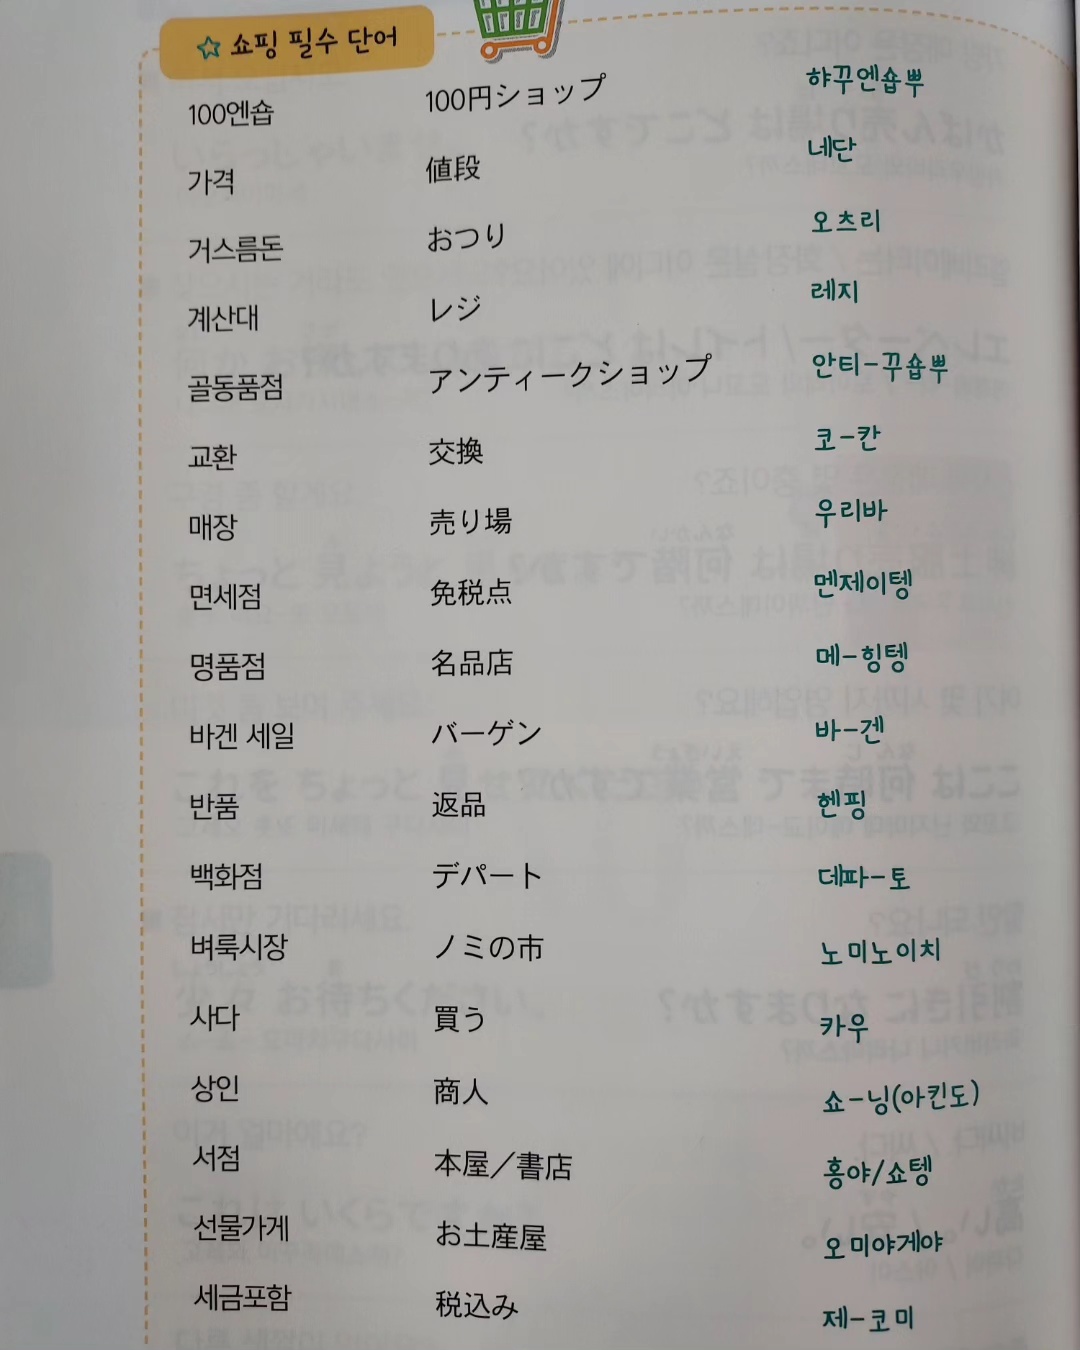 ☆ 쇼핑 필수 단어
100엔숍 100円ショップ 햐꾸엔숍뿌
가격 値段 네단
거스름돈 おつり 오츠리
계산대 レジ 레지
골동품점 アンティークショップ 안티-꾸숍뿌
교환 交換 코-칸
매장 売り場 우리바
면세점 免税点 멘제이텡
명품점 名品店 메-힝텡
바겐 세일 バーゲン 바-겐
반품 返品 헨핑
백화점 デパート 데파-토
벼룩시장 ノミの市 노미노이치
사다 買う 카우
상인 商人 쇼-닝(아킨도)
서점 本屋／書店 홍야/쇼텡
선물가게 お土産屋 오미야게야
세금포함 税込み 제-코미